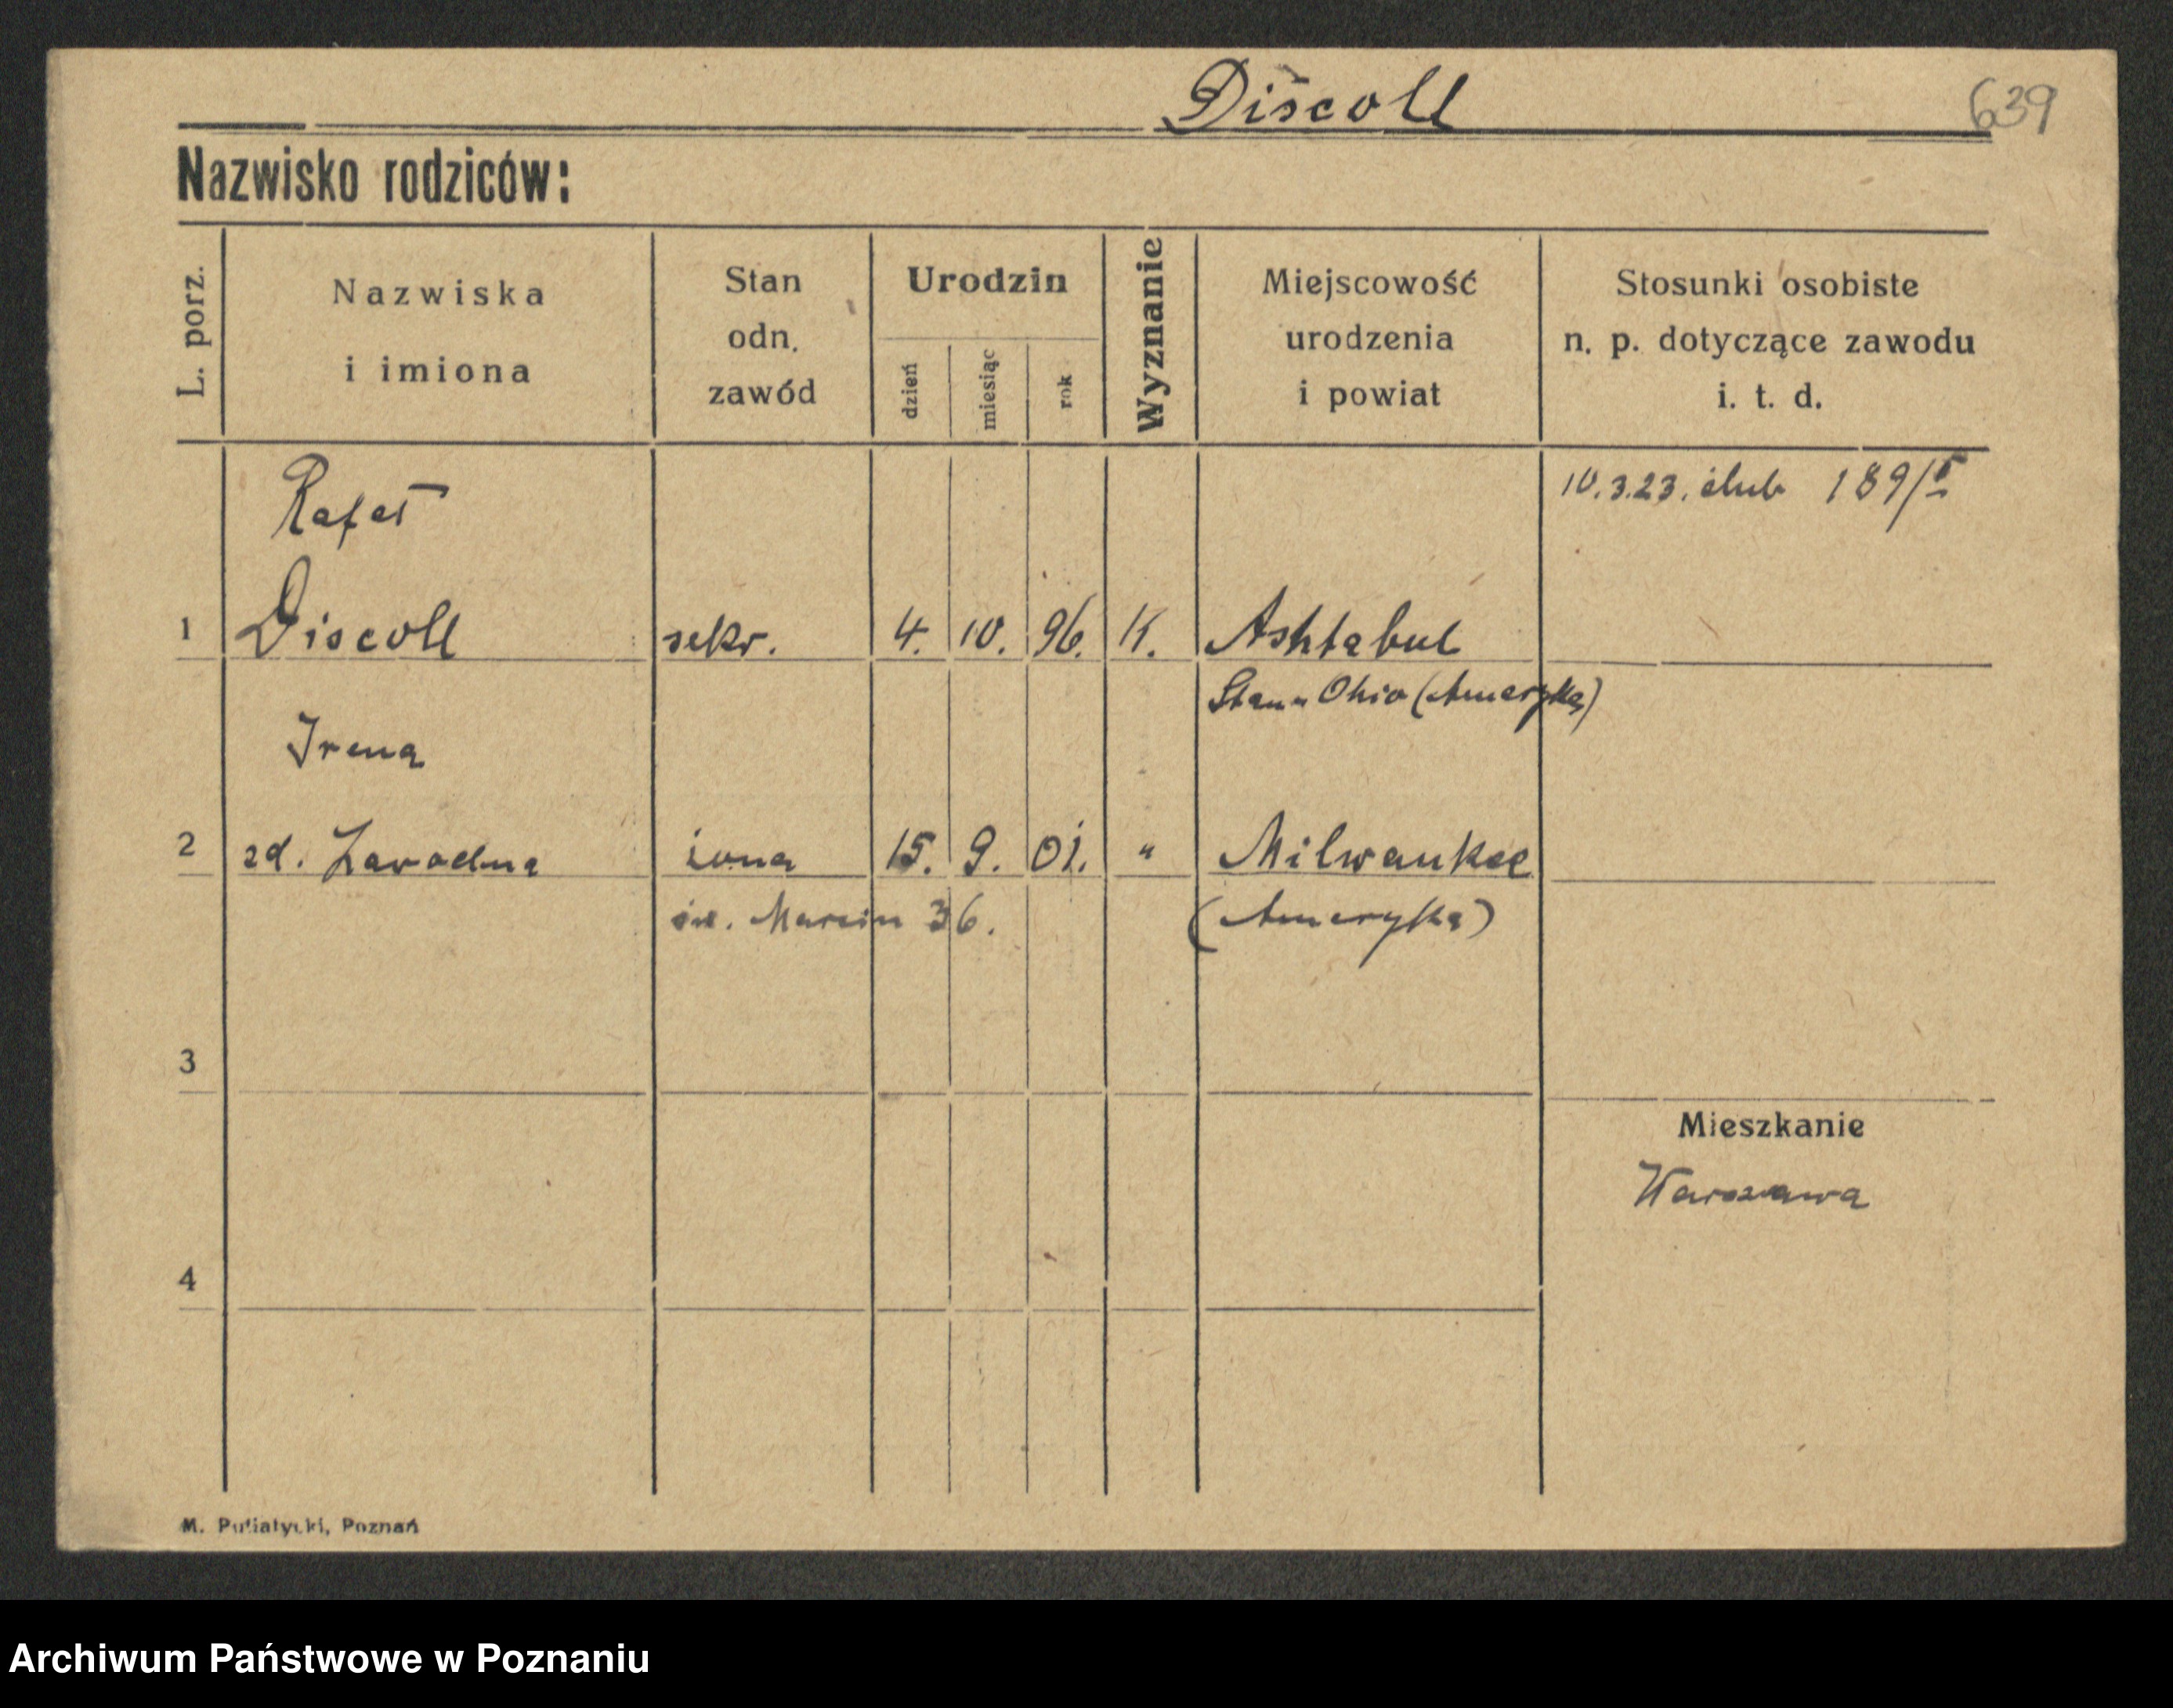 Discoll
639
Nazwisko rodziców:
L. porz.
Nazwiska
i imiona
Stan
odn.
zawód
Urodzin
dzień
miesiąc
rok
Wyznanie
Miejscowość
urodzenia
i powiat
Stosunki osobiste
n. p. dotyczące zawodu
i. t. d.
Rafał
10.3.23. ślub 189/I
1 Discoll sekr. 4. 10. 96. K. Ashtabul
Stan Ohio (Ameryka)
Irena
2 zd. Zawodna żona 15. 9. 01. " Milwaukee
św. Marcin 36. (Ameryka)
3
Mieszkanie
Warszawa
4
M. Putiatycki, Poznań
Archiwum Państwowe w Poznaniu